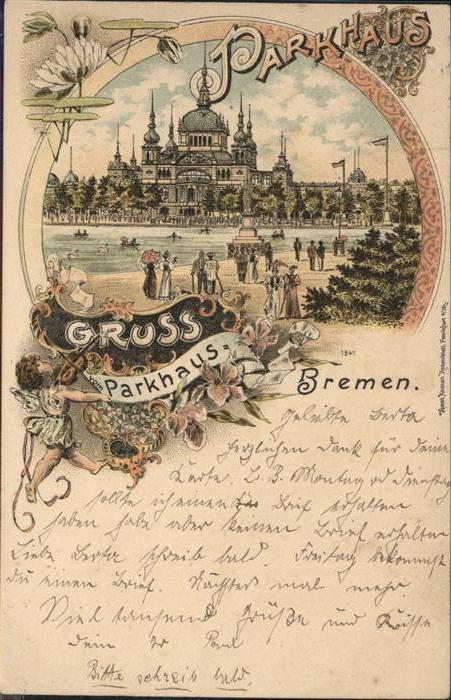 PARKHAUS
GRUSS
vom Parkhaus-
Bremen.
1841
Geliebte Berta
Herzlichen Dank für Deine
Karte. L. B. Montag od Dienstag
sollte ich einen Brief erhalten
haben habe aber keinen Brief erhalten
Liebe Berta schreib bald. Freitag bekommst
du einen Brief. Nächstes mal mehr
Viel tausend Grüße und Küsse
dein Paul
Bitte schreib bald.